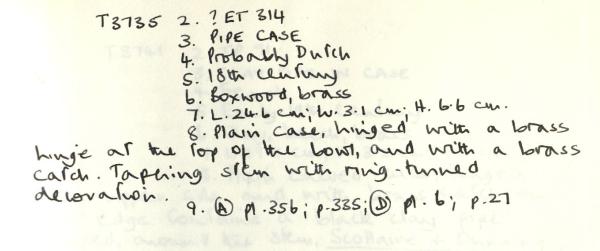 T3735 2. ? ET 314
3. PIPE CASE
4. Probably Dutch
5. 18th century
6. Boxwood, brass
7. L. 24.6 cm; W. 3.1 cm; H. 6.6 cm.
8. Plain case, hinged with a brass
hinge at the top of the bowl, and with a brass
catch. Tapering stem with ring-turned
decoration.
9. Ⓐ pl. 356; p. 335; Ⓓ pl. 6; p. 27